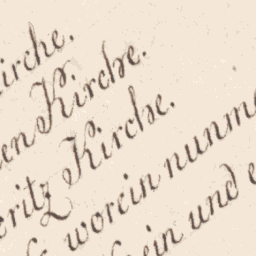 Kirche.
en Kirche.
eritz Kirche.
worein nunme
ein und e